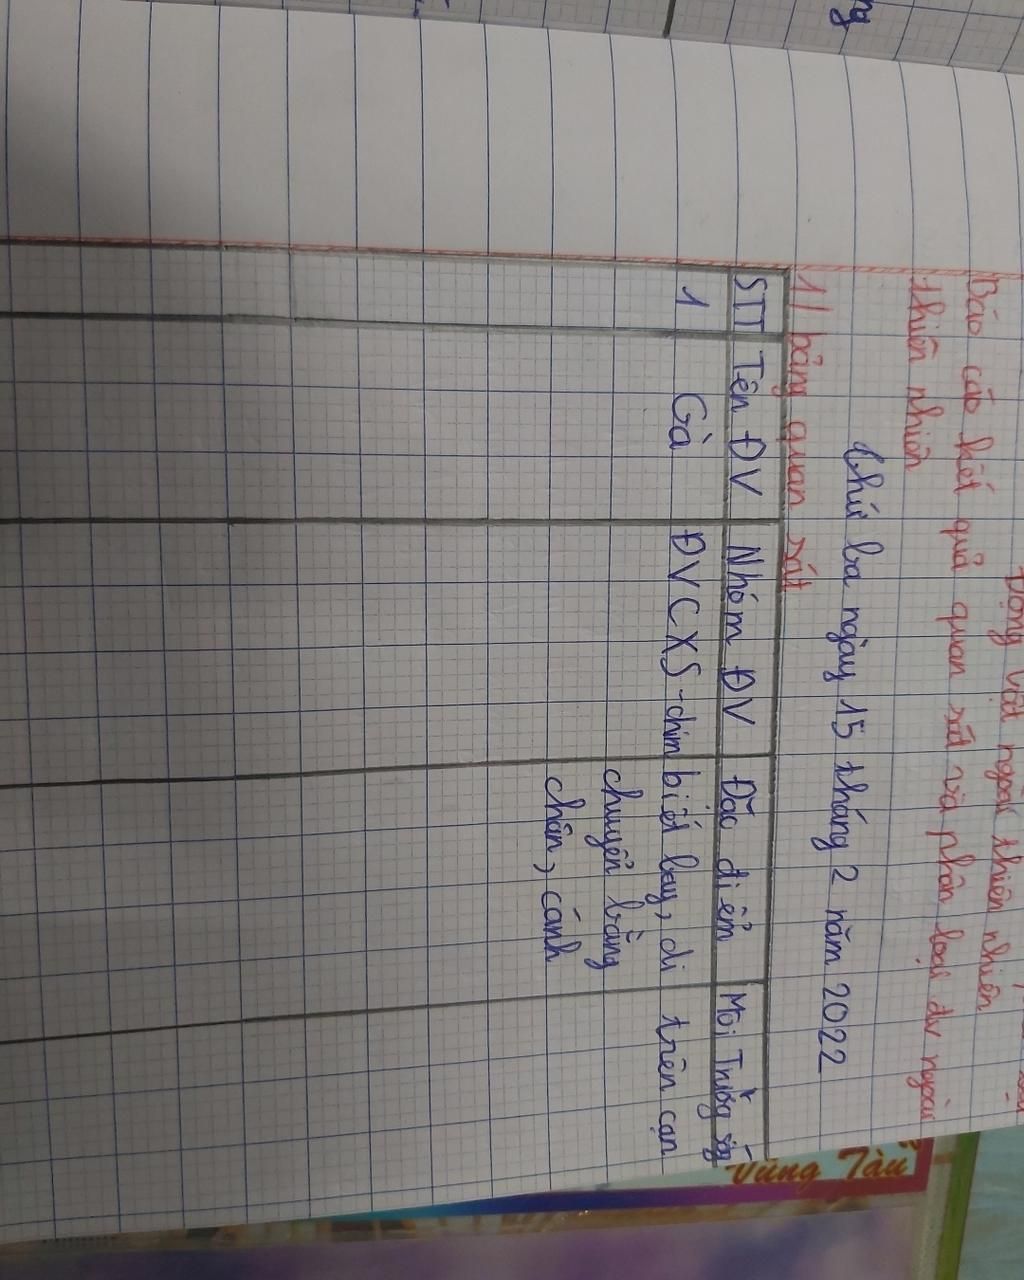 Động vật ngoài thiên nhiên
Báo cáo kết quả quan sát và phân loại đv ngoài
thiên nhiên
thứ ba ngày 15 tháng 2 năm 2022
1/ bảng quan sát
STT Tên ĐV Nhóm ĐV Đặc điểm Môi Trường
1 Gà ĐVCXS - chim biết bay, di trên cạn
chuyển bằng
chân, cánh
Vũng Tàu